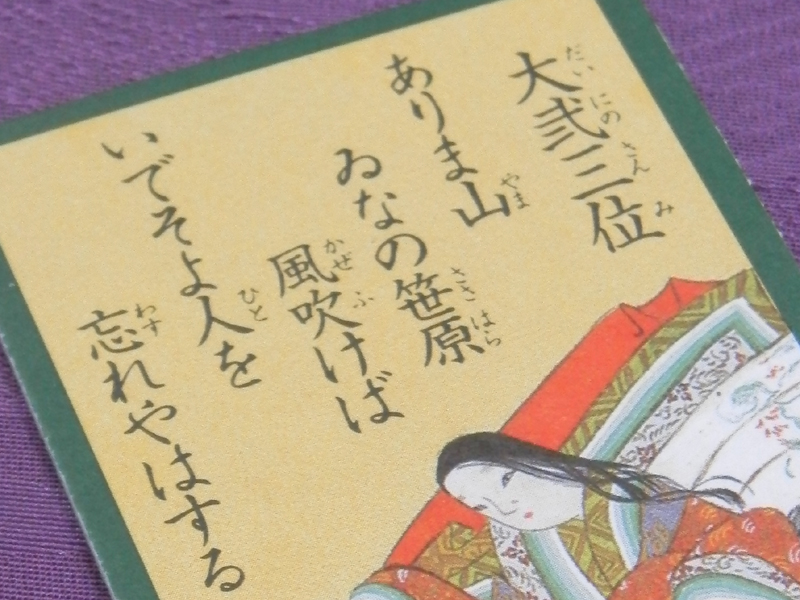 大弐三位
ありま山
ゐなの笹原
風吹けば
いでそよ人を
忘れやはする
だいにのさんみ
やま
ささはら
かぜふ
ひと
わす